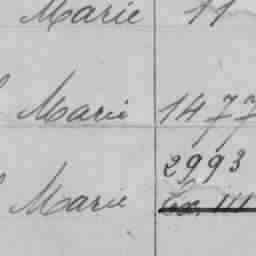 Marie 11
Marie 1477
2993
Marie